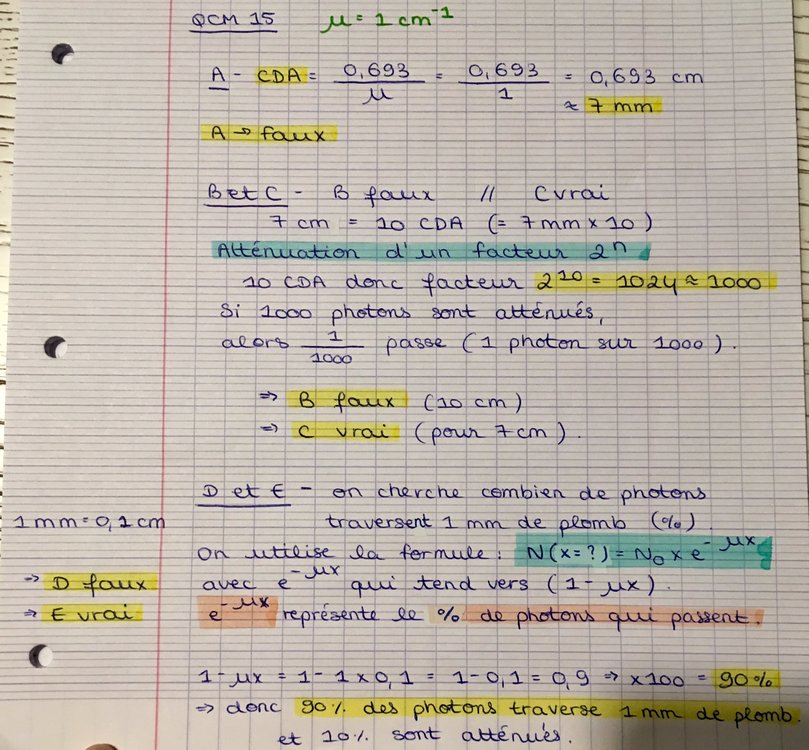 QCM 15 μ = 1 cm⁻¹
A - CDA = 0,693 / μ = 0,693 / 1 = 0,693 cm
≈ 7 mm
A → faux
B et C - B faux // C vrai
7 cm = 10 CDA (= 7 mm x 10)
Atténuation d'un facteur 2ⁿ
10 CDA donc facteur 2¹⁰ = 1024 ≈ 1000
Si 1000 photons sont atténués,
alors 1/1000 passe (1 photon sur 1000).
⇒ B faux (10 cm)
⇒ C vrai (pour 7 cm).
D et E - on cherche combien de photons
1 mm = 0,1 cm traversent 1 mm de plomb (%).
On utilise la formule : N(x=?) = N₀ x e^-μx
→ D faux avec e^-μx qui tend vers (1-μx).
→ E vrai e^-μx représente le % de photons qui passent.
1-μx = 1-1x0,1 = 1-0,1 = 0,9 ⇒ x100 = 90%
⇒ donc 90% des photons traverse 1 mm de plomb.
et 10% sont atténués.